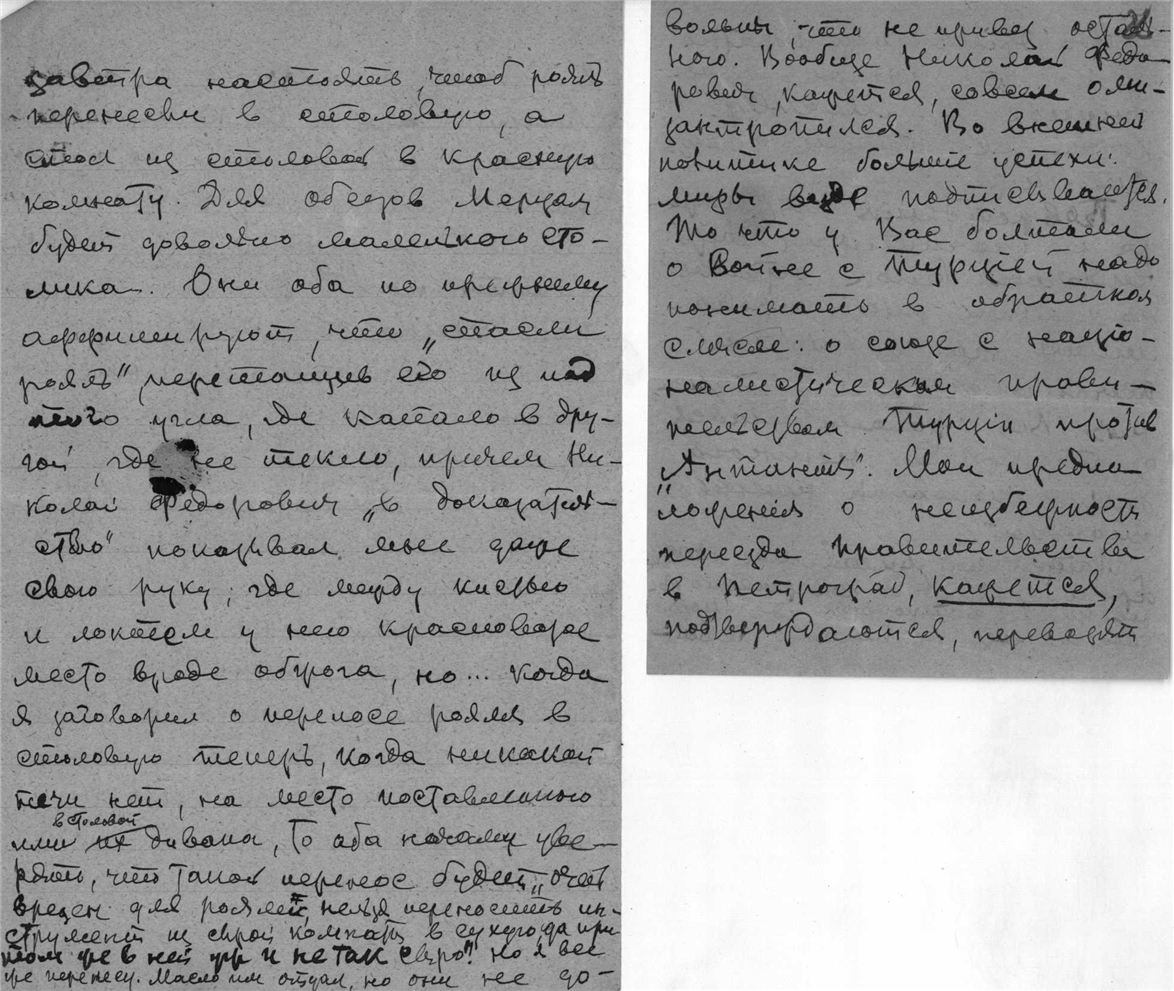 завтра настоять, чтоб рояль
перенесен в столовую, а
стол из столовой в красную
комнату. Для обедов Мерцам
будет довольно маленького сто-
лика. Они оба по прежнему
аффишируют, что „спасли
рояль", перетащив его из под
того угла, где капало в дру-
гой, где не текло, причем Ни-
колай Федорович „в доказатель-
ство" показывал мне даже
свою руку, где между кистью
и локтем у него красноватое
место вроде ожога, но... когда
я заговорил о переносе рояля в
столовую теперь, когда никакой
течи нет, на место поставленного
ими в столовой дивана, то оба начали уве-
рять, что такой перенос будет „очень
вреден для рояля, нельзя переносить ин-
струмент из сырой комнаты в сухую да при
том же в ней уж и не так сыро". Но я все
же перенесу. Масло им отдал, но они не до-
вольны, что не привез осталь-
ного. Вообще Николай Федо-
рович, кажется, совсем оми-
зантропился. Во внешней
политике большие успехи:
миры везде подписываются.
То что у Вас болтали
о войне с Турцией надо
понимать в обратном
смысле: о союзе с нацио-
налистическим прави-
тельством Турции против
„Антанты". Мои предпо-
ложения о неизбежности
переезда правительства
в Петроград, кажется,
подтверждаются, переводят